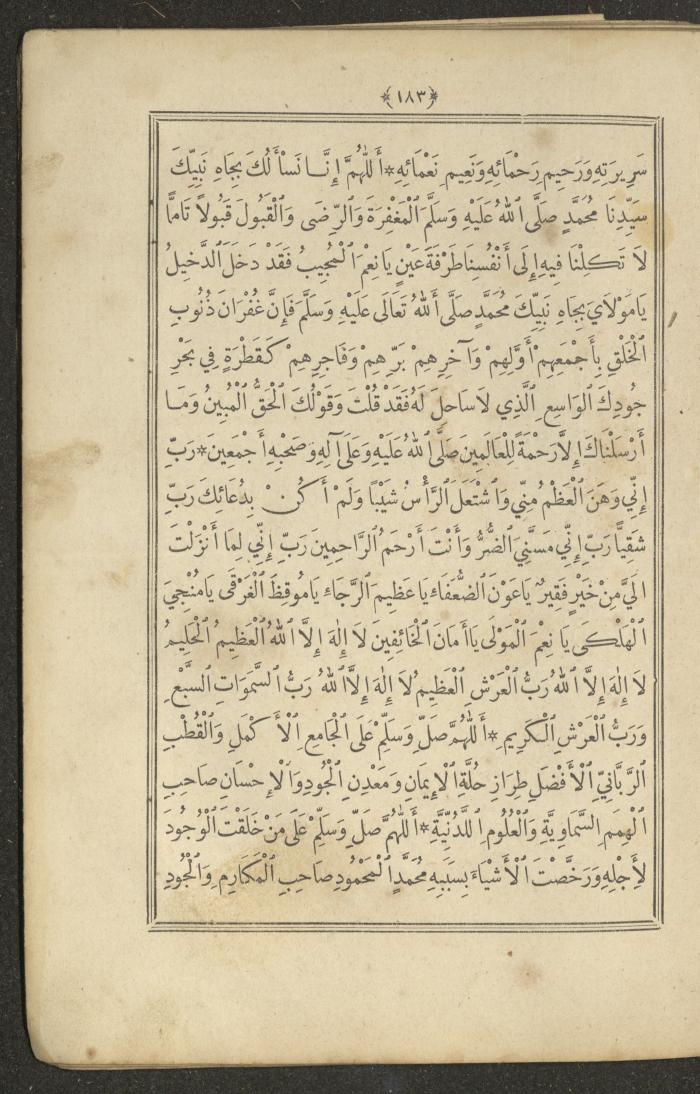 ﴿١٨٣﴾
سَرِيرَتِهِ وَرَحِيمِ رَحْمَائِهِ وَنَعِيمِ نَعْمَائِهِ * أَللّٰهُمَّ إِنَّا نَسْأَلُكَ بِجَاهِ نَبِيِّكَ
سَيِّدِنَا مُحَمَّدٍ صَلَّى ٱللهُ عَلَيْهِ وَسَلَّمَ ٱلْمَغْفِرَةَ وَٱلرِّضَى وَٱلْقَبُولَ قَبُولاً تَامًّا
لَا تَكِلْنَا فِيهِ إِلَى أَنْفُسِنَا طَرْفَةَ عَيْنٍ يَا نِعْمَ ٱلْمُجِيبُ فَقَدْ دَخَلَ ٱلدَّخِيلُ
يَا مَوْلَايَ بِجَاهِ نَبِيِّكَ مُحَمَّدٍ صَلَّى ٱللهُ تَعَالَى عَلَيْهِ وَسَلَّمَ فَإِنَّ غُفْرَانَ ذُنُوبِ
ٱلْخَلْقِ بِأَجْمَعِهِمْ أَوَّلِهِمْ وَآخِرِهِمْ بَرِّهِمْ وَفَاجِرِهِمْ كَقَطْرَةٍ فِي بَحْرِ
جُودِكَ ٱلْوَاسِعِ ٱلَّذِي لَا سَاحِلَ لَهُ فَقَدْ قُلْتَ وَقَوْلُكَ ٱلْحَقُّ ٱلْمُبِينُ وَمَا
أَرْسَلْنَاكَ إِلَّا رَحْمَةً لِلْعَالَمِينَ صَلَّى ٱللهُ عَلَيْهِ وَعَلَى آلِهِ وَصَحْبِهِ أَجْمَعِينَ * رَبِّ
إِنِّي وَهَنَ ٱلْعَظْمُ مِنِّي وَٱشْتَعَلَ ٱلرَّأْسُ شَيْبًا وَلَمْ أَكُنْ بِدُعَائِكَ رَبِّ
شَقِيًّا رَبِّ إِنِّي مَسَّنِيَ ٱلضُّرُّ وَأَنْتَ أَرْحَمُ ٱلرَّاحِمِينَ رَبِّ إِنِّي لِمَا أَنْزَلْتَ
إِلَيَّ مِنْ خَيْرٍ فَقِيرٌ يَا عَوْنَ ٱلضُّعَفَاءِ يَا عَظِيمَ ٱلرَّجَاءِ يَا مُوقِظَ ٱلْغَرْقَى يَا مُنْجِيَ
ٱلْهَلْكَى يَا نِعْمَ ٱلْمَوْلَى يَا أَمَانَ ٱلْخَائِفِينَ لَا إِلٰهَ إِلَّا ٱللهُ ٱلْعَظِيمُ ٱلْحَلِيمُ
لَا إِلٰهَ إِلَّا ٱللهُ رَبُّ ٱلْعَرْشِ ٱلْعَظِيمُ لَا إِلٰهَ إِلَّا ٱللهُ رَبُّ ٱلسَّمٰوَاتِ ٱلسَّبْعِ
وَرَبُّ ٱلْعَرْشِ ٱلْكَرِيمِ * أَللّٰهُمَّ صَلِّ وَسَلِّمْ عَلَى ٱلْجَامِعِ ٱلْأَكْمَلِ وَٱلْقُطْبِ
ٱلرَّبَّانِيِّ ٱلْأَفْضَلِ طِرَازِ حُلَّةِ ٱلْإِيمَانِ وَمَعْدِنِ ٱلْجُودِ وَٱلْإِحْسَانِ صَاحِبِ
ٱلْهِمَمِ ٱلسَّمَاوِيَّةِ وَٱلْعُلُومِ ٱللَّدُنِّيَّةِ * أَللّٰهُمَّ صَلِّ وَسَلِّمْ عَلَى مَنْ خَلَقْتَ ٱلْوُجُودَ
لِأَجْلِهِ وَرَخَّصْتَ ٱلْأَشْيَاءَ بِسَبَبِهِ مُحَمَّدٍ ٱلْمَحْمُودِ صَاحِبِ ٱلْمَكَارِمِ وَٱلْجُودِ